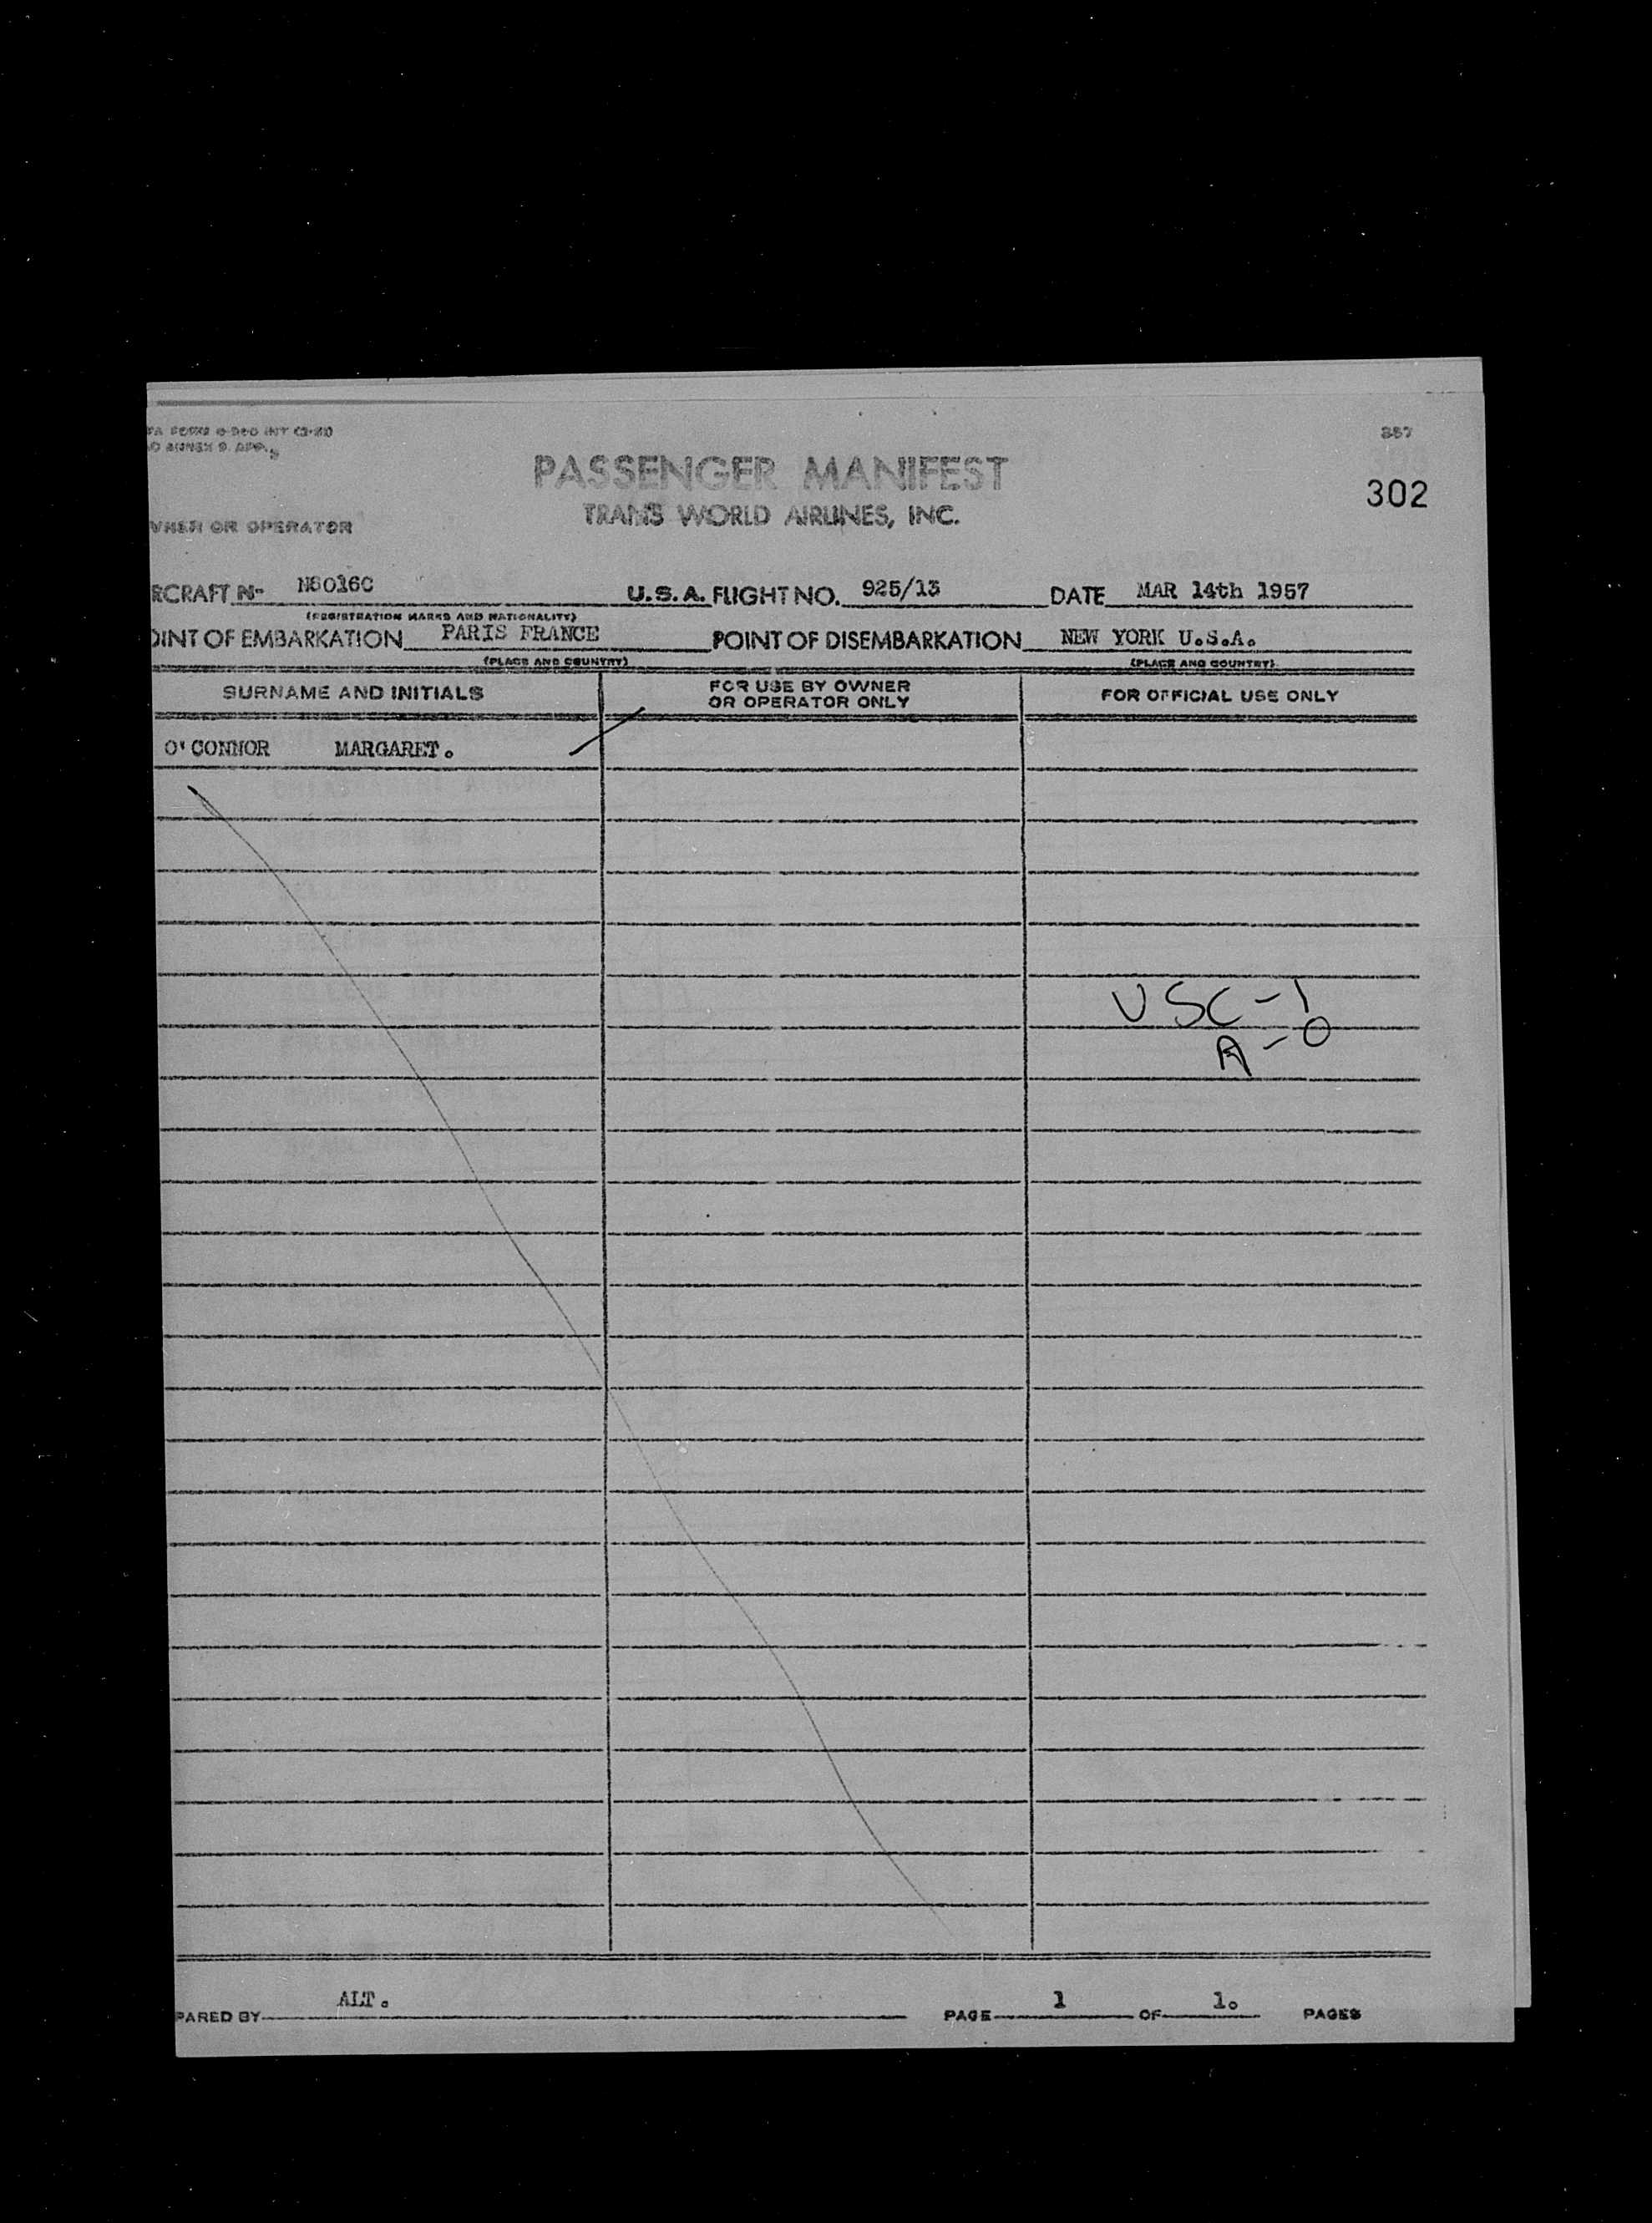 857
PASSENGER MANIFEST
302
TRANS WORLD AIRLINES, INC.
OR OPERATOR
RCRAFT N- N6016C U.S.A. FLIGHT NO. 925/13 DATE MAR 14th 1957
(REGISTRATION MARKS AND NATIONALITY)
OINT OF EMBARKATION PARIS FRANCE POINT OF DISEMBARKATION NEW YORK U.S.A.
(PLACE AND COUNTRY) (PLACE AND COUNTRY)
SURNAME AND INITIALS FOR USE BY OWNER OR OPERATOR ONLY FOR OFFICIAL USE ONLY
O'CONNOR MARGARET.
USC-1
A-0
PARED BY ALT. PAGE 1 OF 1. PAGES